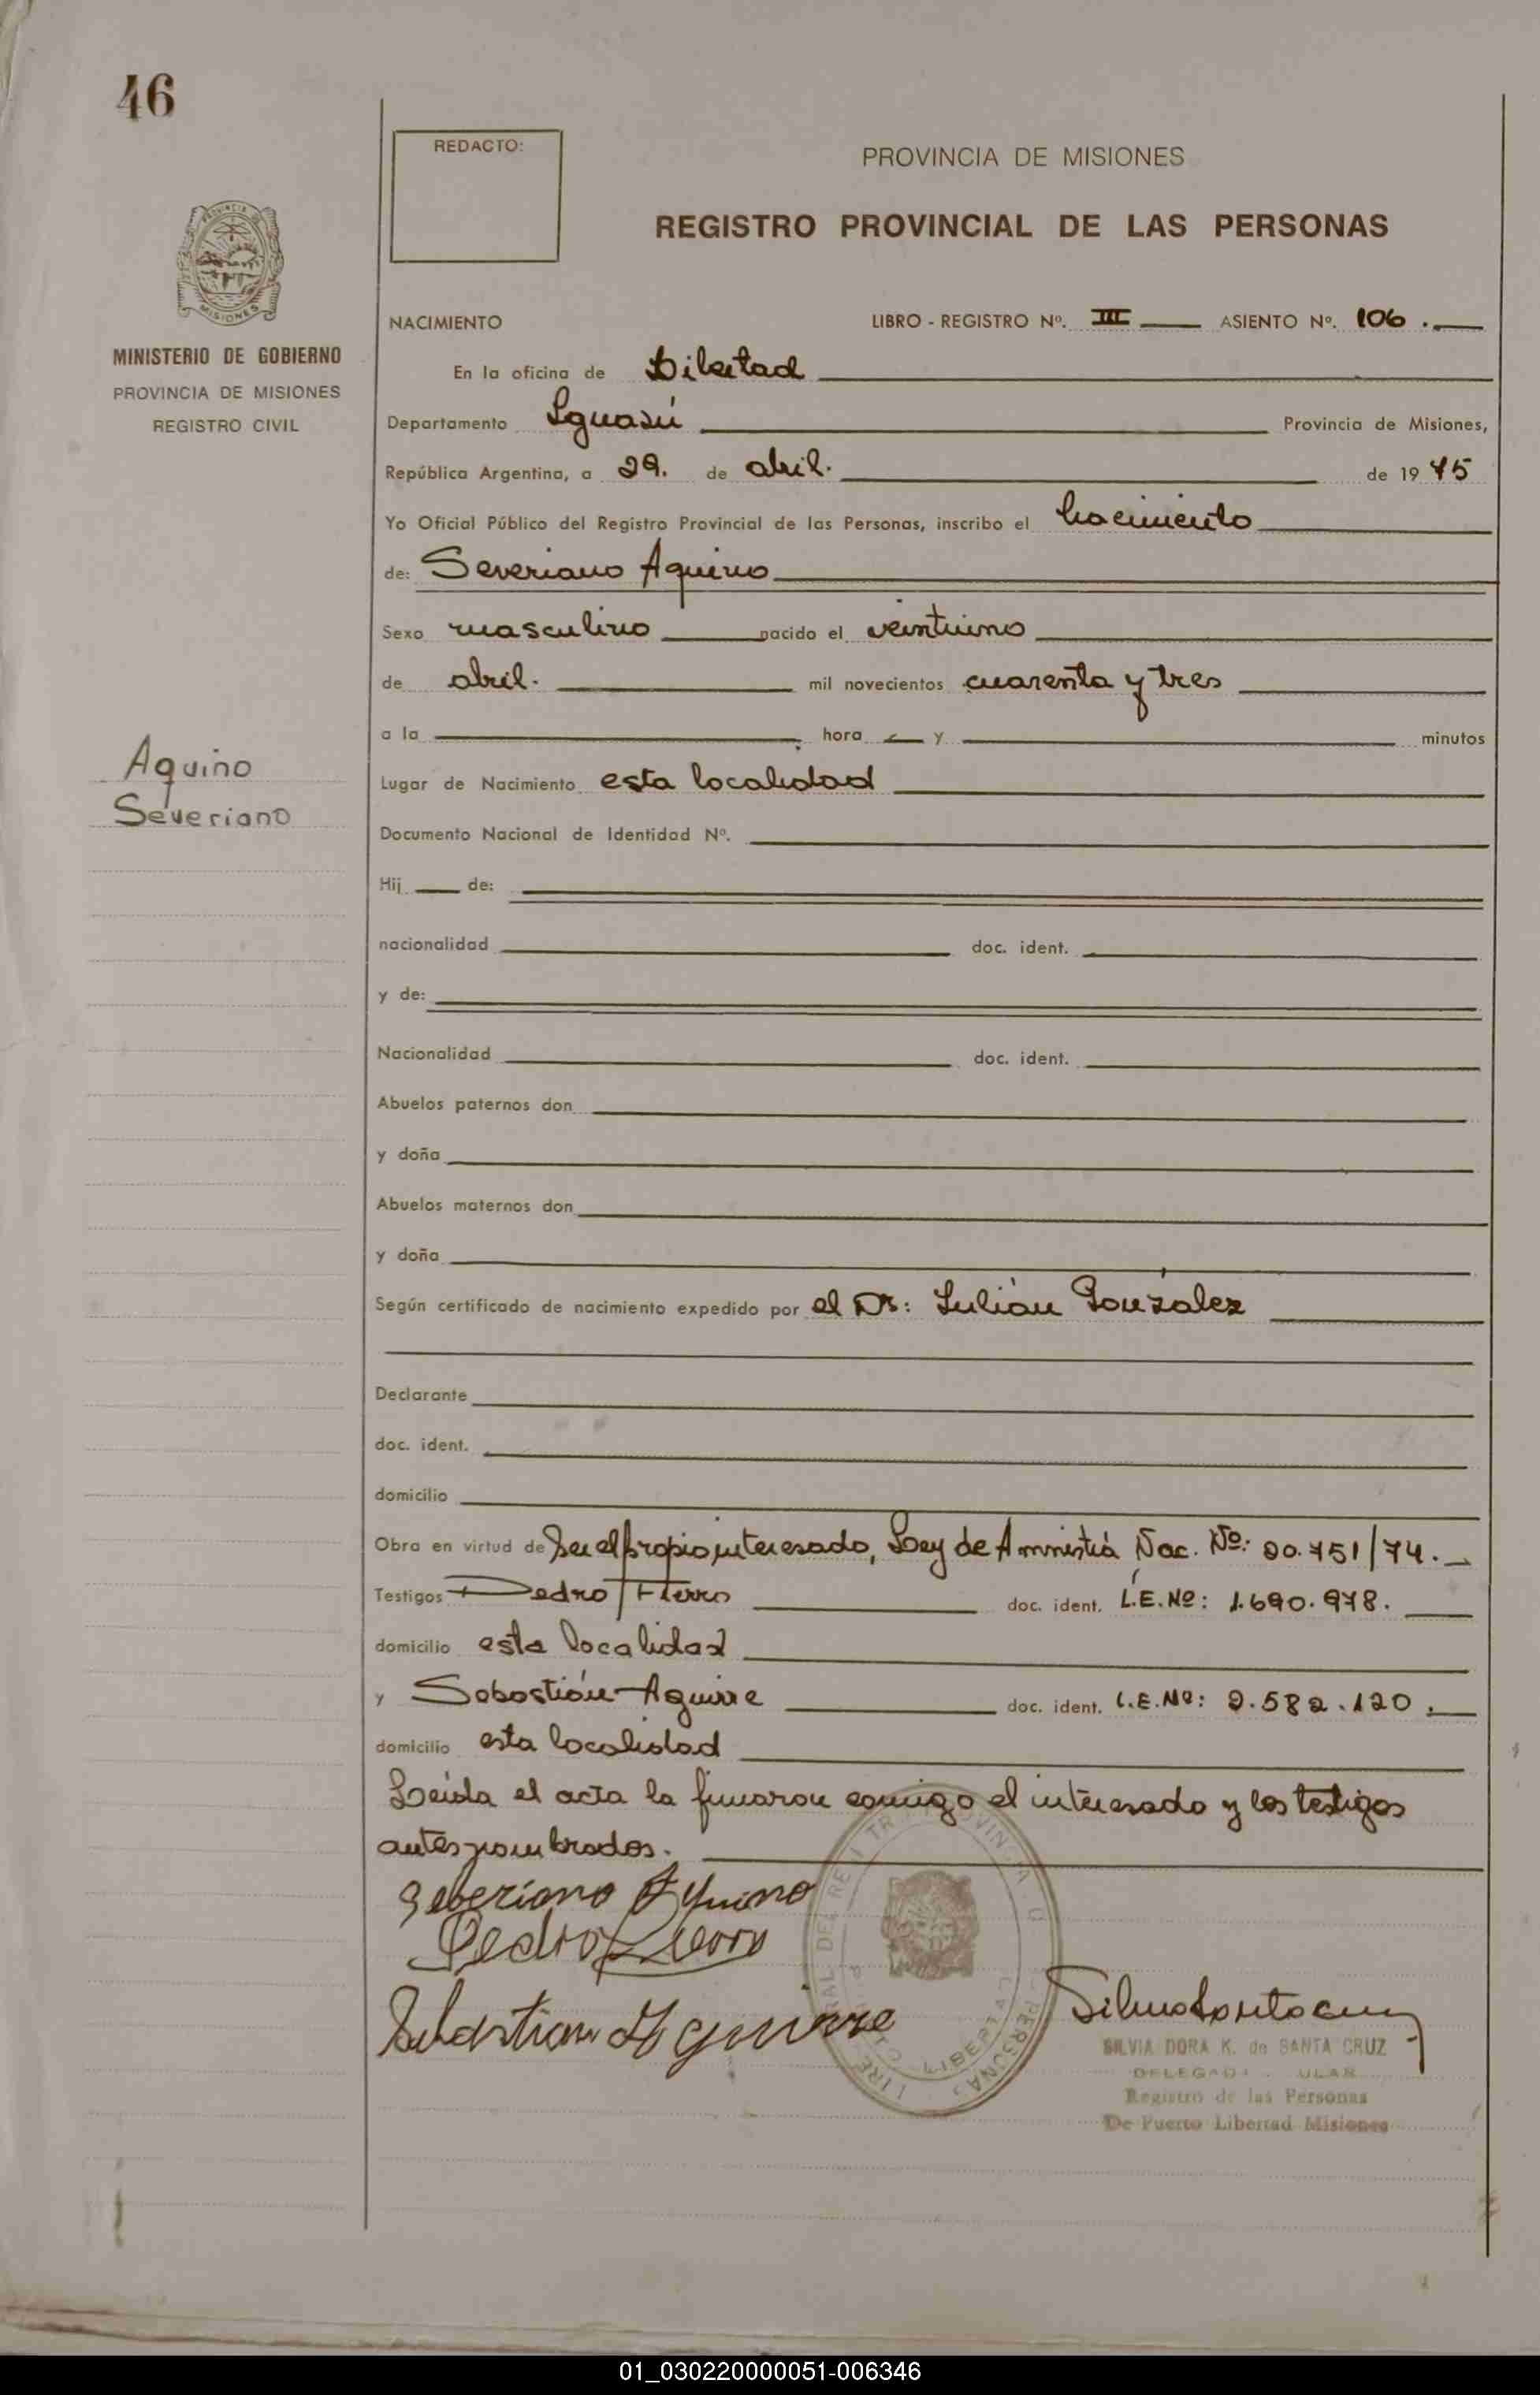 46
REDACTO:
PROVINCIA DE MISIONES
REGISTRO PROVINCIAL DE LAS PERSONAS
MISIONES
MINISTERIO DE GOBIERNO
PROVINCIA DE MISIONES
REGISTRO CIVIL
NACIMIENTO LIBRO - REGISTRO Nº. III ASIENTO Nº. 106.
En la oficina de Libertad
Departamento Iguasú Provincia de Misiones,
República Argentina, a 29. de abril. de 1975
Yo Oficial Público del Registro Provincial de las Personas, inscribo el nacimiento
de: Severiano Aquino
Sexo masculino nacido el veintiuno
de abril. mil novecientos cuarenta y tres
a la hora y minutos
Aquino
Severiano
Lugar de Nacimiento esta localidad
Documento Nacional de Identidad Nº.
Hij de:
nacionalidad doc. ident.
y de:
Nacionalidad doc. ident.
Abuelos paternos don
y doña
Abuelos maternos don
y doña
Según certificado de nacimiento expedido por el Dr: Julián González
Declarante
doc. ident.
domicilio
Obra en virtud de Ser el propio interesado, Ley de Amnistía Nac. Nº: 20.751/74.
Testigos Pedro Fierro doc. ident. L.E.Nº: 1.690.978.
domicilio esta localidad
y Sebastián Aguirre doc. ident. L.E.Nº: 2.582.120.
domicilio esta localidad
Leída el acta la firmaron conmigo el interesado y los testigos
antes nombrados.
Seberiano Aquino
Pedro
Sebastian Aguirre
SILVIA DORA K. de SANTA CRUZ
Registro de las Personas
De Puerto Libertad Misiones
01_030220000051-006346